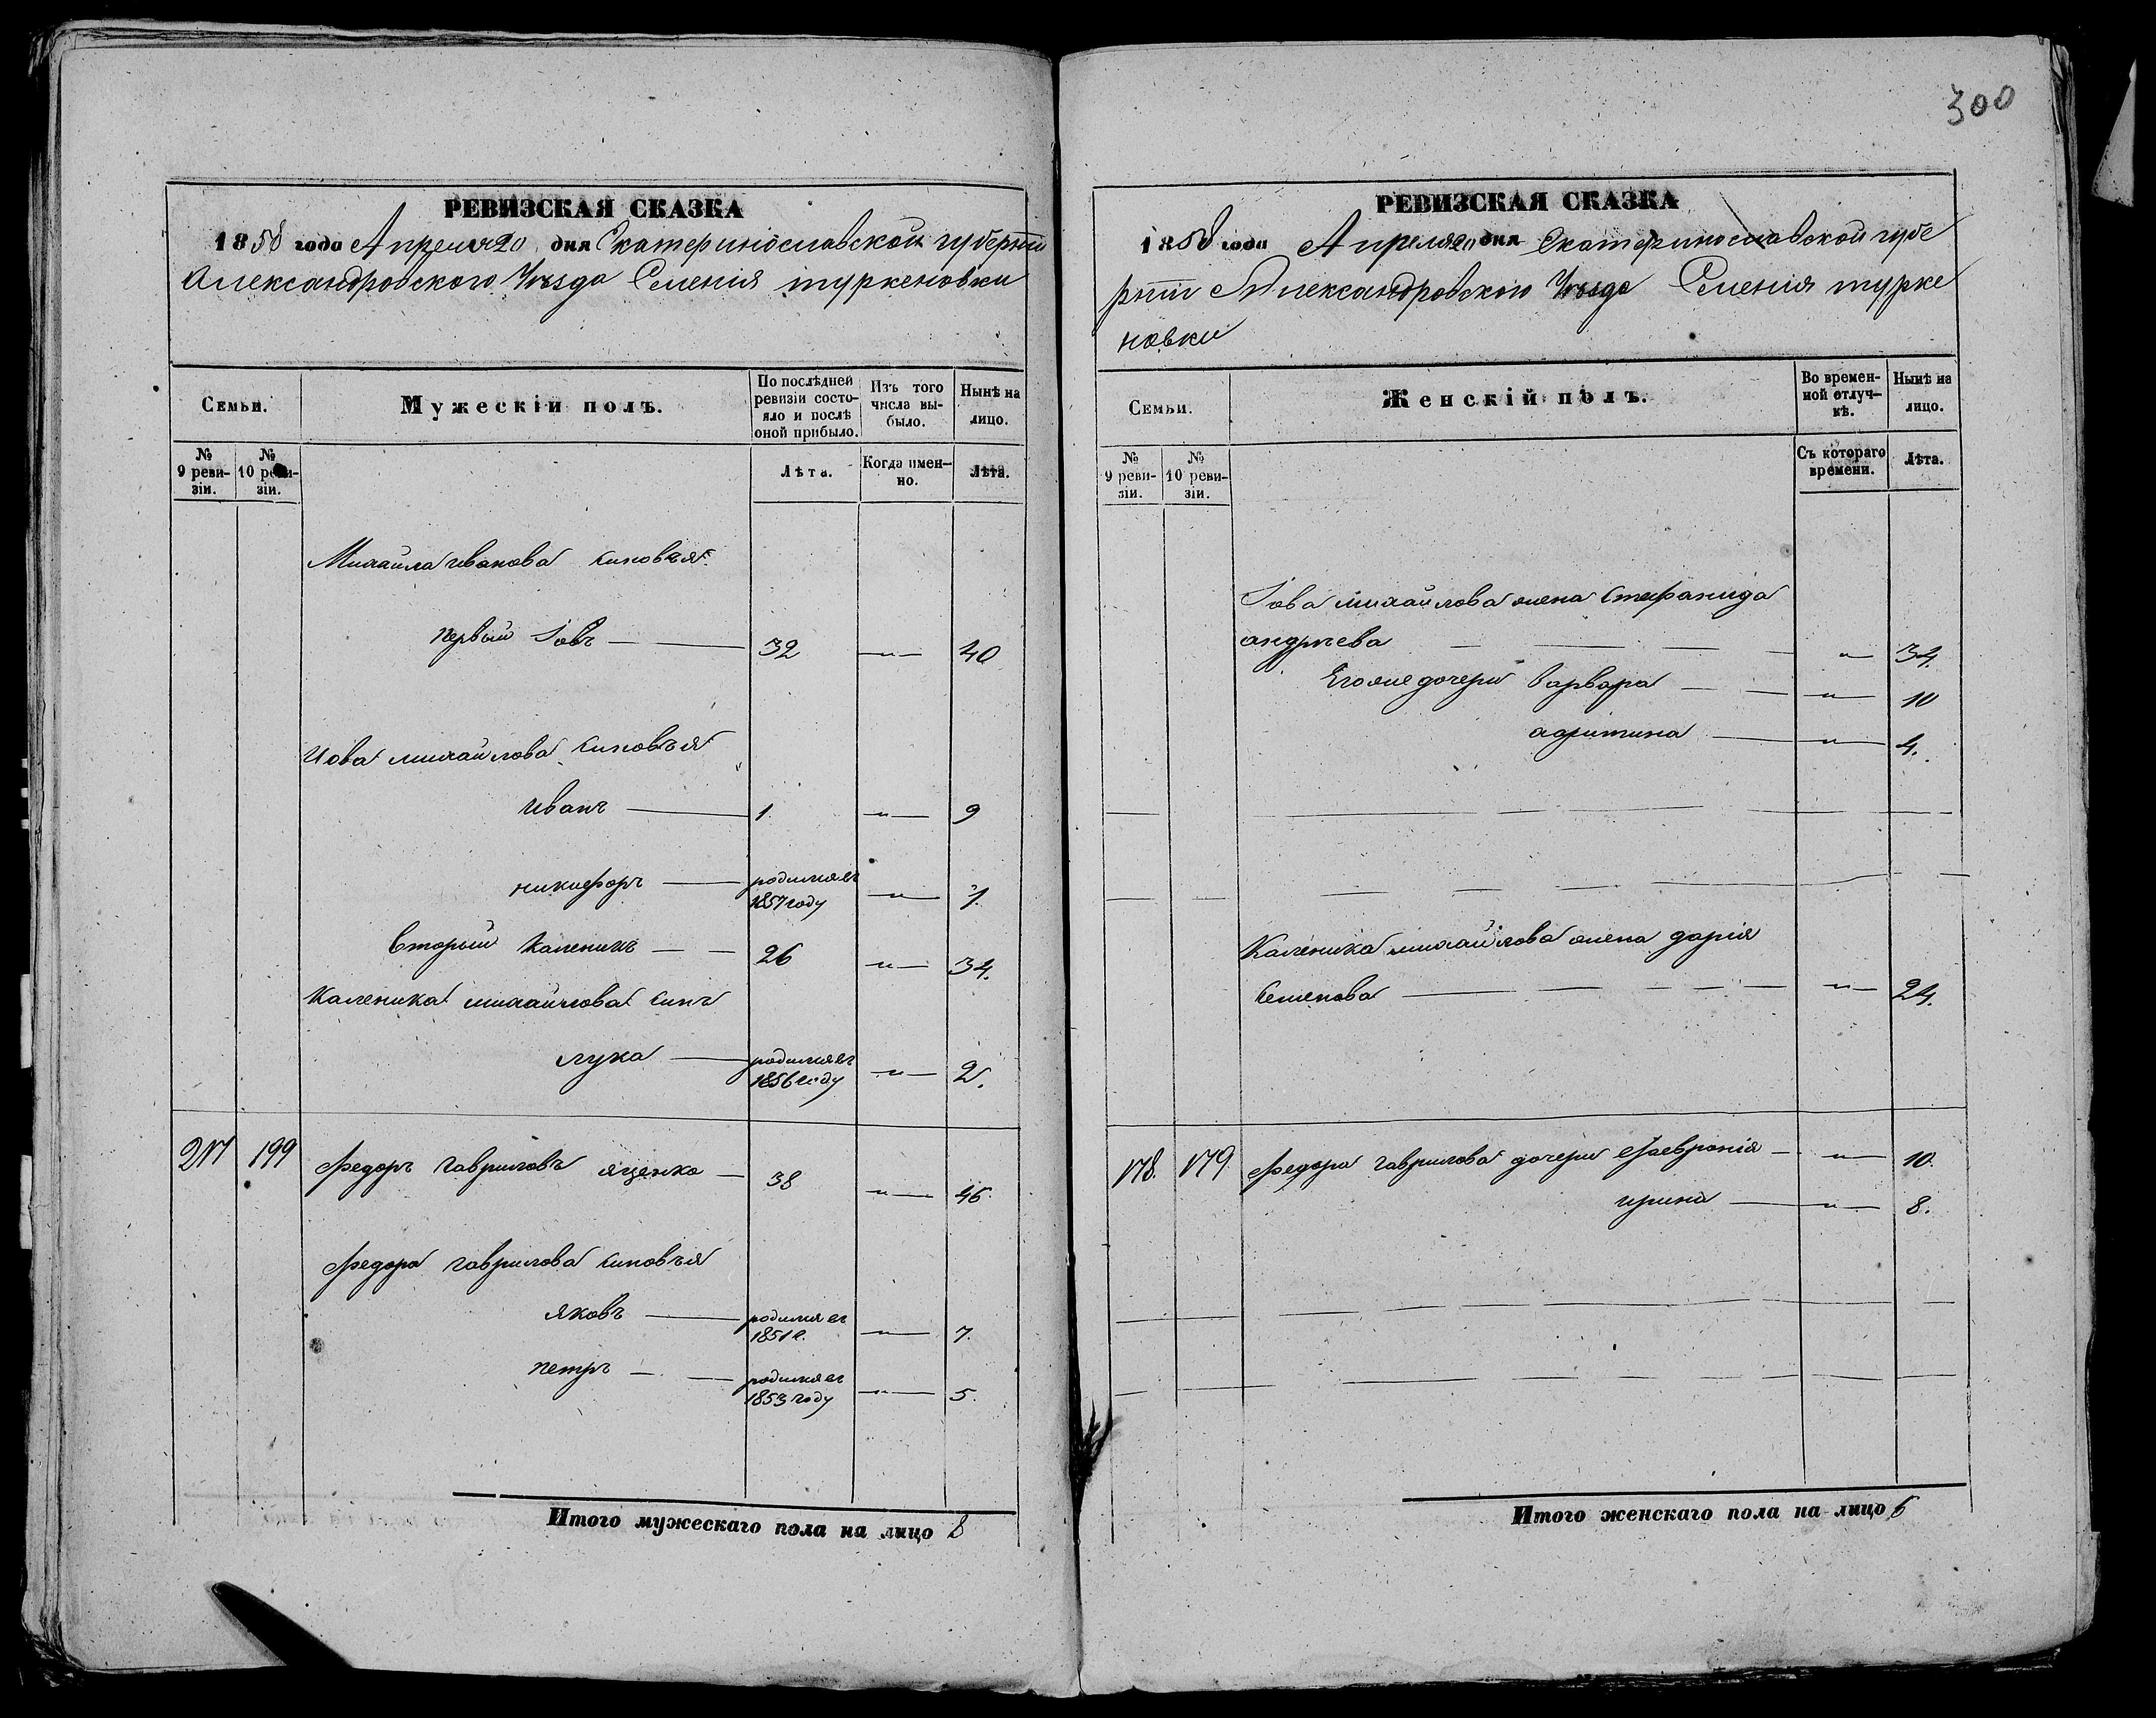 300
РЕВИЗСКАЯ СКАЗКА
1858 года Апреля 20 дня Екатеринославской губернии
Александровского Уѣзда Селенія туркеновки
Семьи.
Мужескій полъ.
По послѣдней ревизіи состояло и послѣ оной прибыло.
Изъ того числа выбыло.
Нынѣ на лицо.
№ 9 ревизіи.
№ 10 ревизіи.
Лѣта.
Когда именно.
Лѣта.
Михайла иванова синовъя
первый Іовъ — 32 — " — 40
Иова михайлова синовъя
иванъ — 1. — " — 9
никифоръ — родился въ 1857 году — " — 1.
Вторый Каленикъ — 26 — " — 34.
Каленика михайлова синъ
лука — родился въ 1856 году — " — 2.
217 199 Федоръ гавриловъ яценко — 38 — " — 46.
Федора гаврилова синовъя
яковъ — родился въ 1851 г. — " — 7.
петръ — родился въ 1853 году — " — 5.
Итого мужескаго пола на лицо 8
РЕВИЗСКАЯ СКАЗКА
1858 года Апреля 20 дня Екатеринославской губе
рніи Александровского Уѣзда Селенія турке
новки
Семьи.
Женскій полъ.
Во временной отлучкѣ.
Нынѣ на лицо.
№ 9 ревизіи.
№ 10 ревизіи.
Съ котораго времени.
Лѣта.
Іова михайлова жена Стефанида
андрѣева — " — 34.
Его же дочери варвара — " — 10
— " — 4.
Каленика михайлова жена дарія
Семенова — " — 24.
178. 179. Федора гаврилова дочери Февронія — " — 10.
ирина — " — 8.
Итого женскаго пола на лицо 6